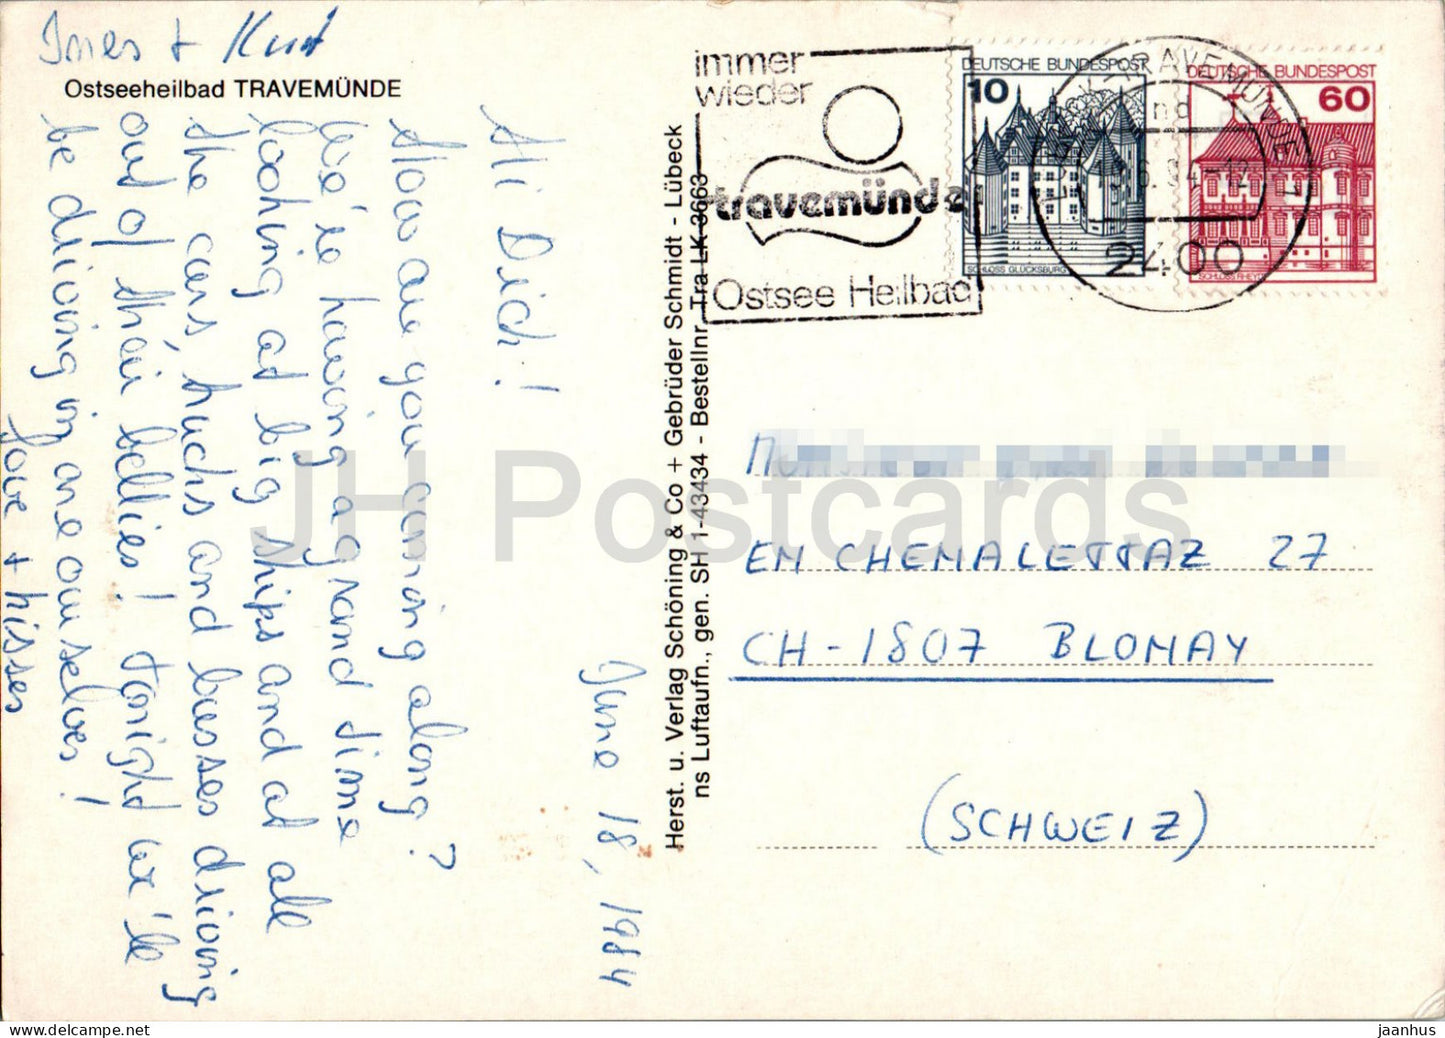 Ines + Kurt
Ostseeheilbad TRAVEMÜNDE
June 18, 1984
Hi Dich!
How are you coming along?
We're having a grand time
looking at big ships and at all
the cars, trucks and busses driving
out of their bellies! Tonight we'll
be driving in one ourselves!
Love + kisses
Herst. u. Verlag Schöning & Co + Gebrüder Schmidt - Lübeck
ns Luftaufn., gen. SH 1-43434 - Bestellnr. Tra LK 3663
immer
wieder
travemünde
Ostsee Heilbad
DEUTSCHE BUNDESPOST
10
SCHLOSS GLÜCKSBURG
DEUTSCHE BUNDESPOST
60
TRAVEMÜNDE 1
2400
EN CHEMALETTAZ 27
CH-1807 BLONAY
(SCHWEIZ)
JH Postcards
jh-postcards.com
jaanhus